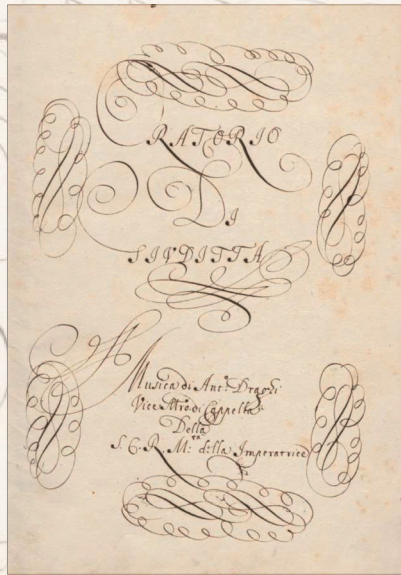 ORATORIO
DI
GIVDITTA
Musica di Ant.º Draghi
Vice Mro. di Cappella
Della
S. C. R. M.ta della Imperatrice